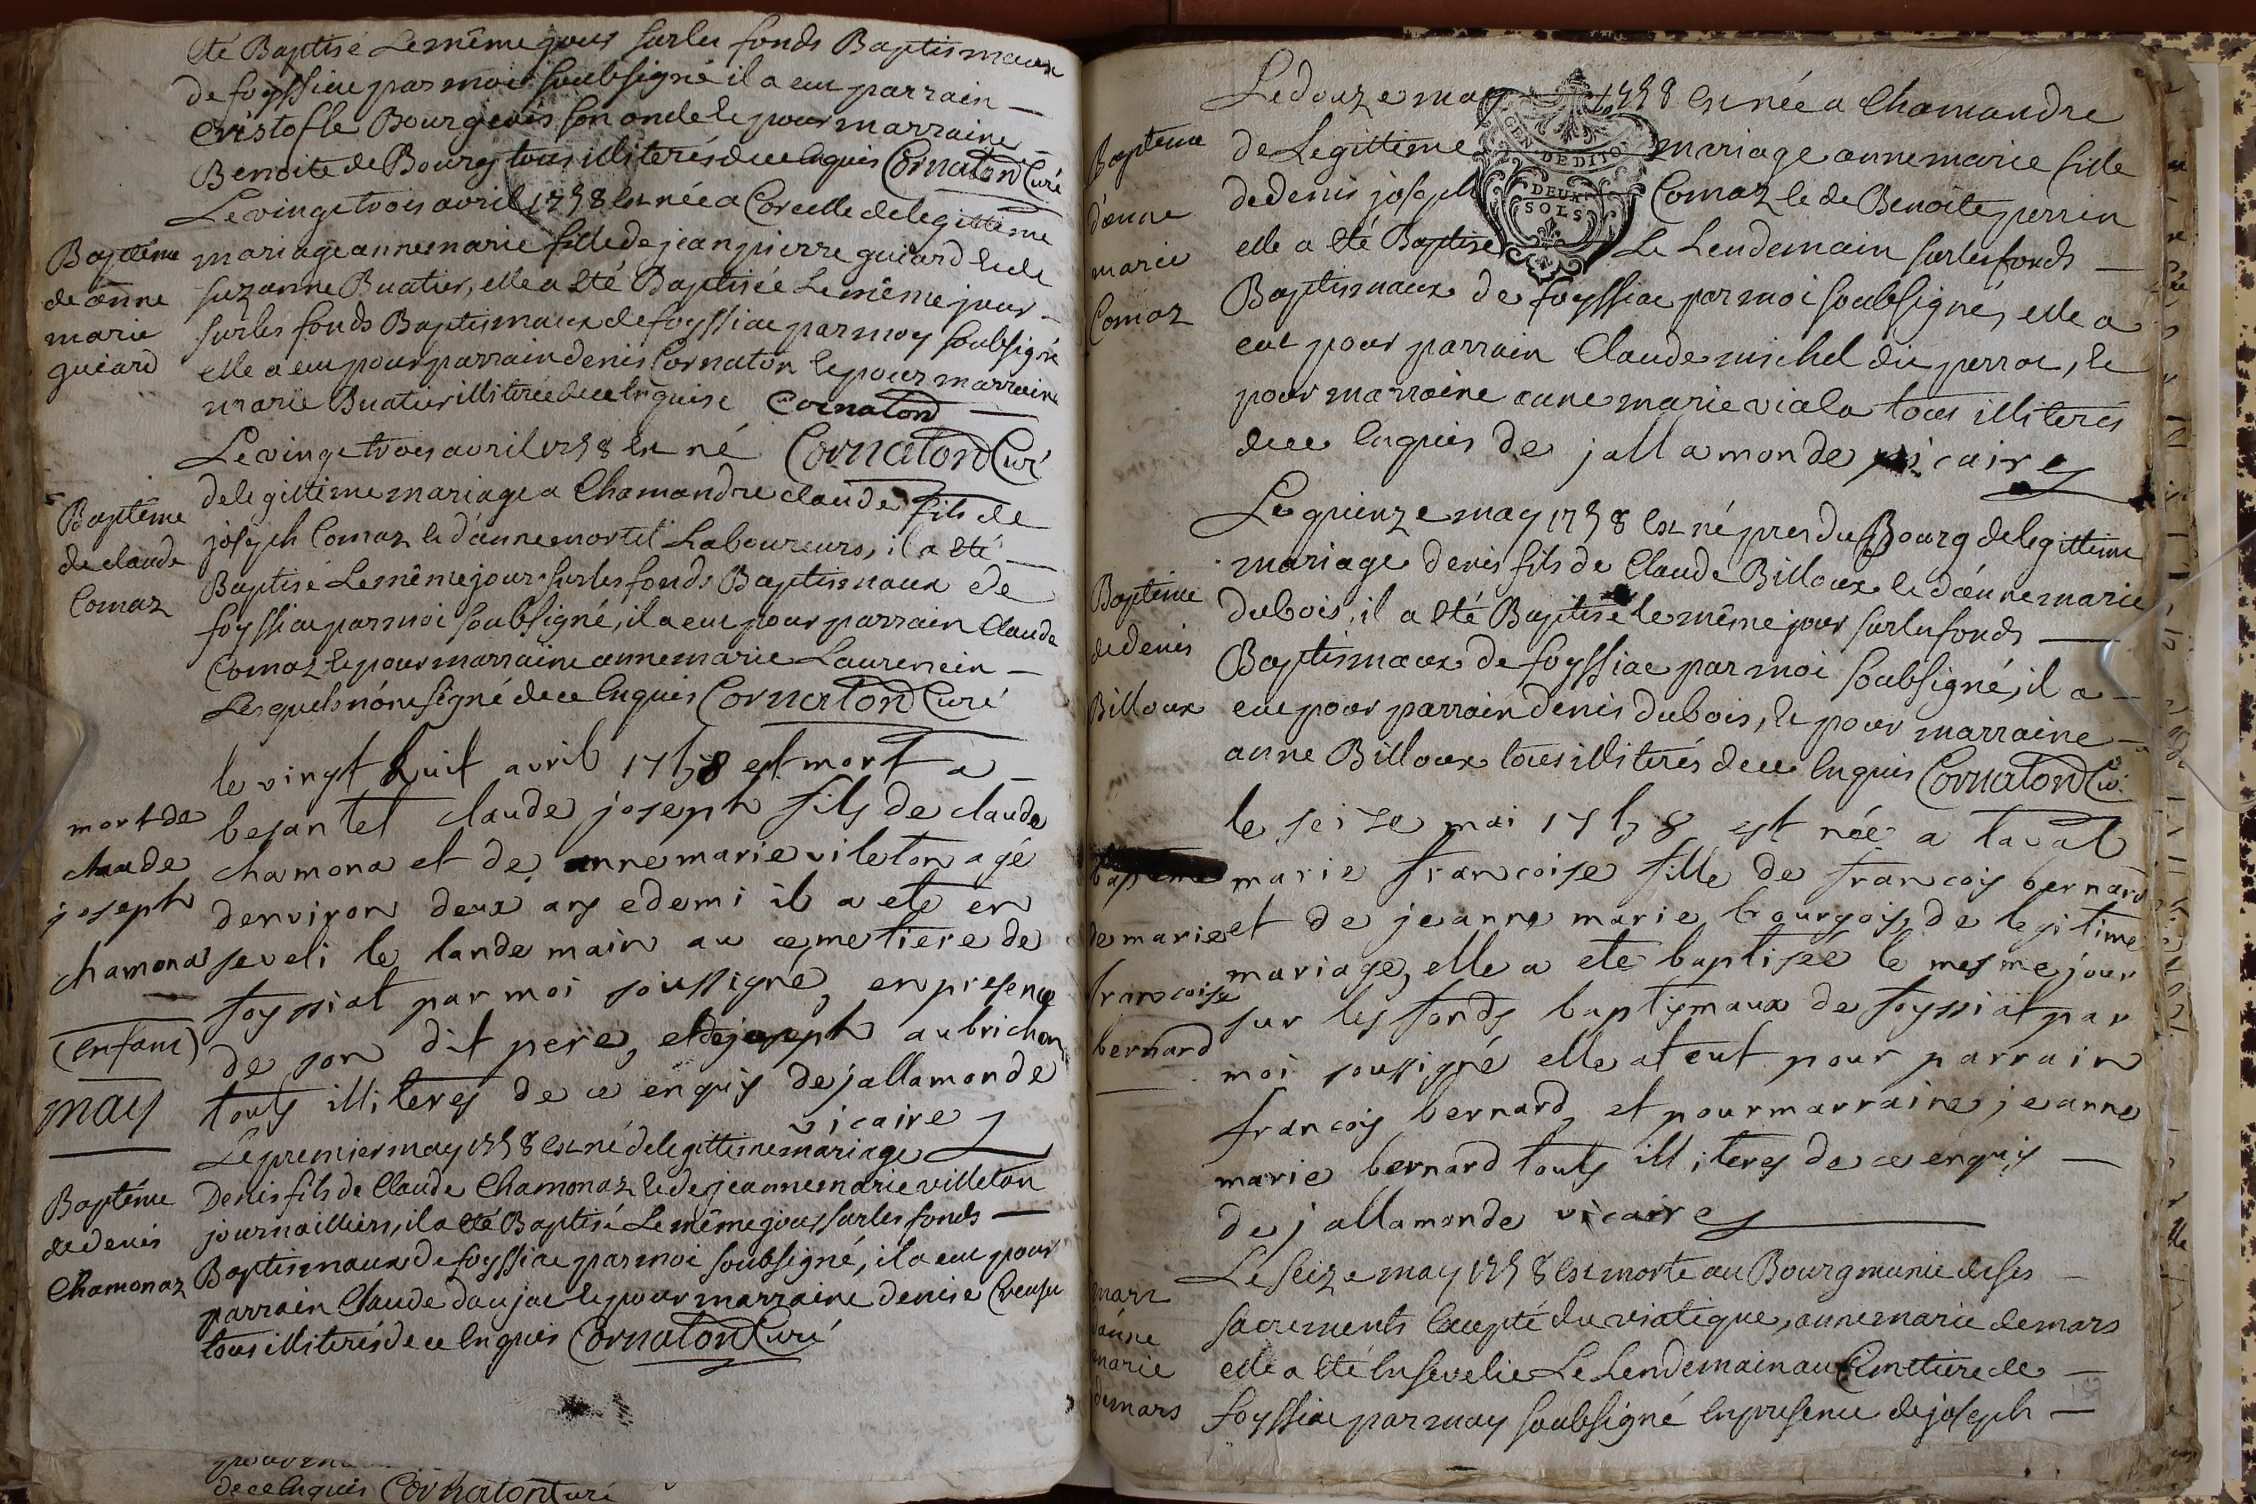 été Baptisé Le même jour sur les fonds Baptismaux
de foyssiac par moi soubsigné il a eut parrain
Cristofle Bourgeois son oncle et pour marraine
Benoite de Bourg tous illiterés de ce Enquis Cornaton Curé
Le vingt trois avril 1758 Est née a Corcelle de legittime
Baptême
de anne
marie
guiard
mariage anne marie fille de jean pierre guiard et de
suzanne Buatier, elle a été Baptisée Le même jour
sur les fonds Baptismaux de foyssiac par moy soubsigné
elle a eut pour parrain denis Cornaton et pour marraine
marie Buatier illiterée de ce Enquise Cornaton
Le vingt trois avril 1758 Est né Cornaton Curé
Baptême
de claude
Comaz
de legittime mariage a Chamandre claude fils de
joseph Comaz et d'anne mortel Laboureurs, il a été
Baptisé Le même jour sur les fonds Baptismaux de
foyssiac par moi soubsigné, il a eut pour parrain Claude
Comaz et pour marraine anne marie Laurencin
Lesquels n'ont signé de ce Enquis Cornaton Curé
le vingt huit avril 1758 est mort a
mort de
claude
joseph
chamona
(enfant)
besantet claude joseph fils de claude
chamona et de anne marie vileton agé
denviron deux ans edemi il a eté en
seveli le landemain au cemetiere de
foyssiat par moi soussigné, en presence
de son dit pere, et de joseph aubrichon
touts illiteres de ce enquis de jallamonde
vicaire
may
Le premier may 1758 Est né de legittime mariage
Baptême
de denis
Chamonaz
Denis fils de Claude Chamonaz et de jeanne marie villeton
journailliers, il a été Baptisé Le même jour sur les fonds
Baptismaux de foyssiac par moi soubsigné, il a eut pour
parrain Claude daujac et pour marraine denise Creuse
tous illiterés de ce Enquis Cornaton Curé
de ce Enquis Cornaton Curé
Le douze may 1758 Est née a Chamandre
GEN DE DIJON
DEUX
SOLS
Baptême
d'anne
marie
Comaz
de Legittime mariage anne marie fille
de denis joseph Comaz et de Benoite perrin
elle a été Baptisé Le Lendemain sur les fonds
Baptismaux de foyssiac par moi soubsigné, elle a
eut pour parrain Claude michel dit perrot, et
pour marraine anne marie viala tous illiterés
de ce Enquis de jallamonde vicaire
Le quinze may 1758 Est né pres du Bourg de legittime
Baptême
de denis
Billoux
mariage denis fils de Claude Billoux et d'anne marie
dubois, il a été Baptisé le même jour sur les fonds
Baptismaux de foyssiac par moi soubsigné, il a
eut pour parrain denis dubois, et pour marraine
anne Billoux tous illiterés de ce Enquis Cornaton Cu.
le seize mai 1758 est née a laval
bapteme
de marie
francoise
bernard
marie francoise fille de francois bernard
et de jeanne marie bourgois, de legitime
mariage, elle a eté baptiseé le mesme jour
sur les fonds baptismaux de foyssiat par
moi soussigné elle at eut pour parrain
francois bernard, et pour marraine, jeanne
marie bernard touts illiteres de ce enquis
de jallamonde vicaire
Le seize may 1758 Est morte au Bourg munie de ses
mort
d'anne
marie
demars
sacrements Excepté du viatique, anne marie demars
elle a été Ensevelie Le Lendemain au Cimetiere de
foyssiac par moy soubsigné En presence de joseph